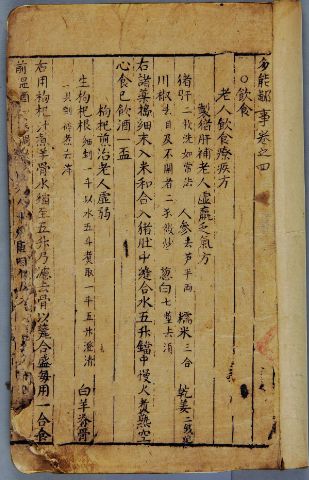 多能鄙事卷之四
○飲食
老人飲食療疾方
製猪肚補老人虛羸乏氣方
猪肚 一枚洗如常法 人參 去芦半両 糯米 三合 乾姜
川椒 去目及不開者 蔥白 七莖去須
右諸藥搗細末入米和合入猪肚中縫合水五升鐺中慢火煑熟空
心食已飲酒一盃
枸杞煎治老人虛弱
生枸杞根 細剉一斗以水五斗煑取一斗五升澄清 白羊脊骨
一具剉碎煑去滓
右用枸杞汁煑羊骨水
五升乃濾去骨以瓷合盛每用一合食
前溫酒